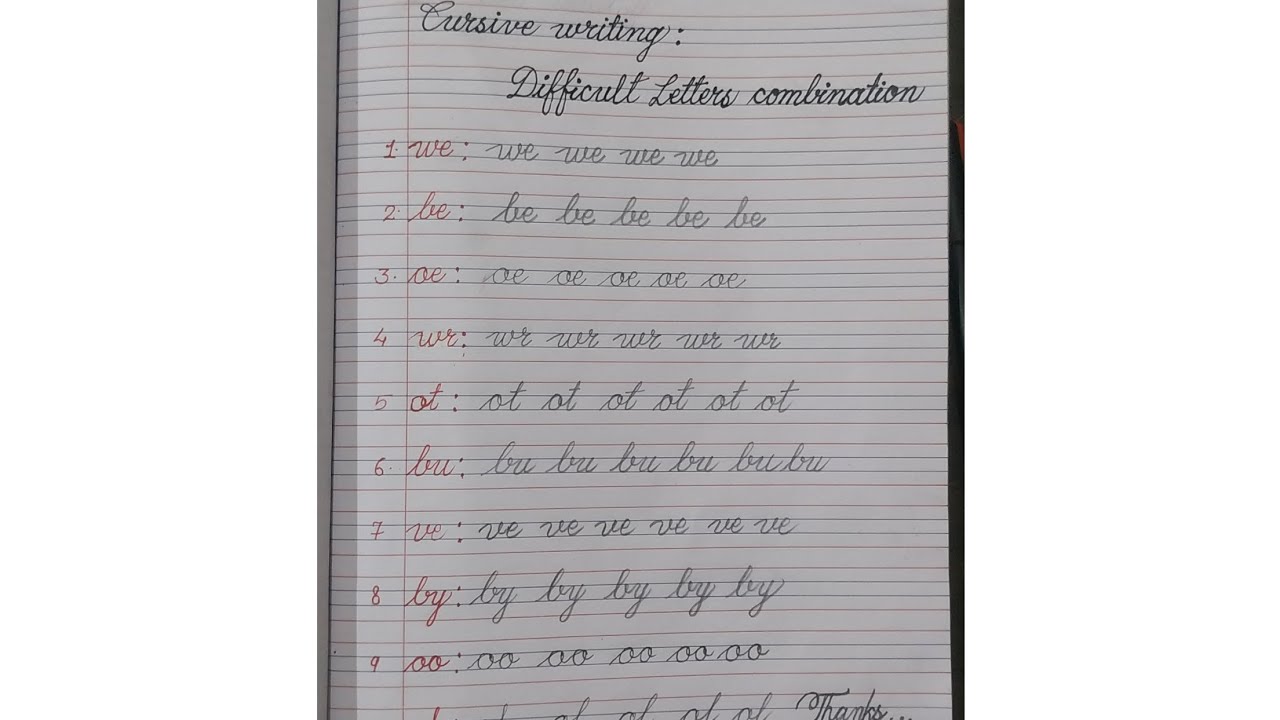 Cursive writing:
Difficult Letters combination
1. we: we we we we
2. be: be be be be be
3. oe: oe oe oe oe oe
4 wr: wr wr wr wr wr
5 ot: ot ot ot ot ot ot
6. bu: bu bu bu bu bu bu
7 ve: ve ve ve ve ve ve
8 by: by by by by by
9 oo: oo oo oo oo oo
Thanks...